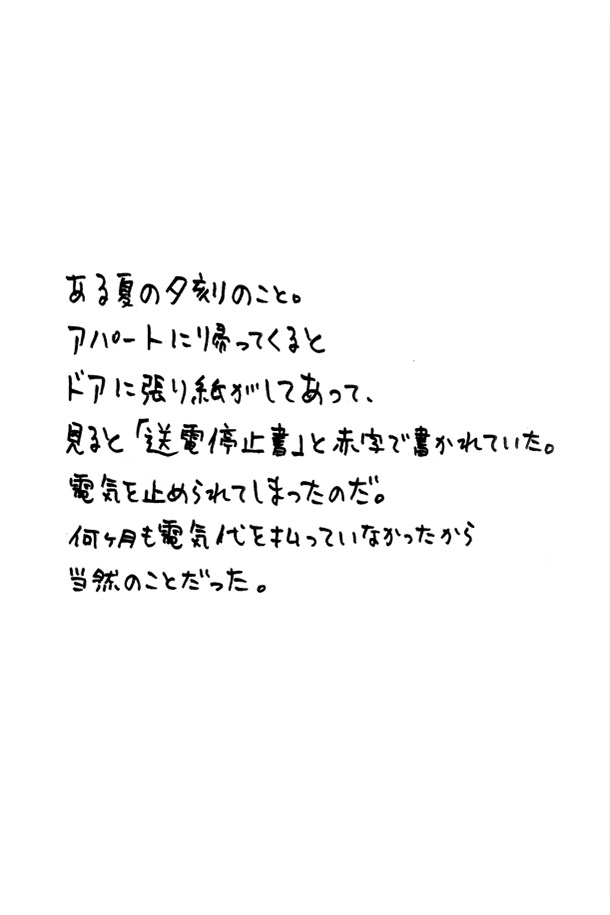 ある夏の夕刻のこと。
アパートに帰ってくると
ドアに張り紙がしてあって、
見ると「送電停止書」と赤字で書かれていた。
電気を止められてしまったのだ。
何ヶ月も電気代を払っていなかったから
当然のことだった。